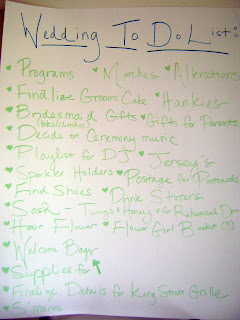 Wedding To Do List:
♥ Programs ♥ Matches ♥ Alterations
♥ Finalize Grooms Cake ♥ Hankies
♥ Bridesmaid Gifts ♥ Gifts for Parents
♥ Decide on Ceremony music
♥ Playlist for DJ ♥ Jersey's
♥ Sparkler Holders ♥ Postage for Postcards
♥ Find Shoes ♥ Drink Stirrers
♥ Sash - & Honey for Rehearsal
♥ Hair Flower ♥ Flower Girl Basket (?)
♥ Welcome Bags
♥ Supplies for
♥ Finalize Details for King Street Grille
♥ S'mores